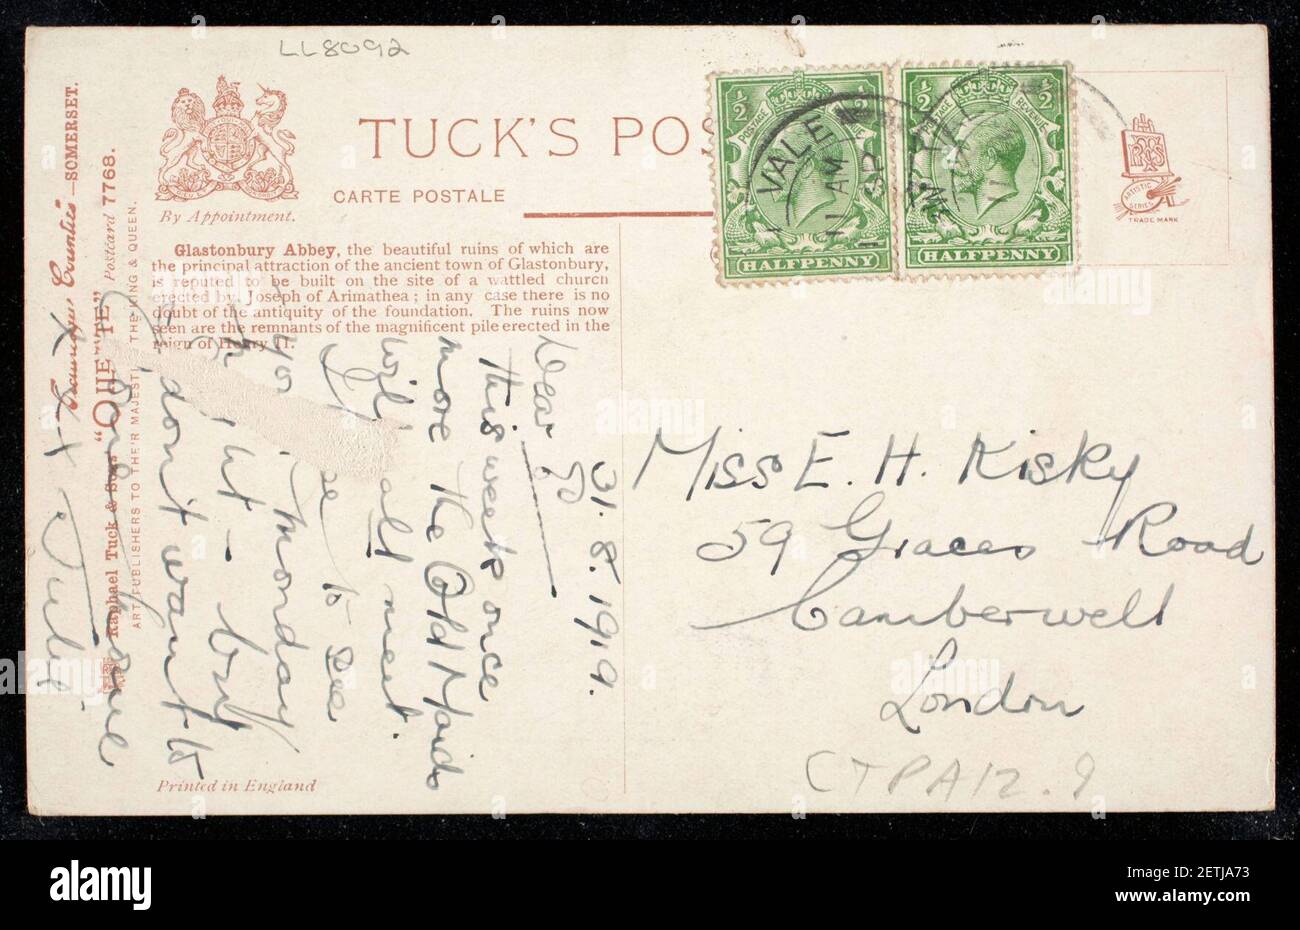 LL8092
TUCK'S PO
CARTE POSTALE
By Appointment.
Glastonbury Abbey, the beautiful ruins of which are
the principal attraction of the ancient town of Glastonbury,
is reputed to be built on the site of a wattled church
erected by Joseph of Arimathea; in any case there is no
doubt of the antiquity of the foundation. The ruins now
seen are the remnants of the magnificent pile erected in the
reign of Henry II.
Counties—SOMERSET.
Postcard 7768.
Raphael Tuck & Sons
ART PUBLISHERS TO THEIR MAJESTI THE KING & QUEEN.
Printed in England
POSTAGE REVENUE
½ ½
HALFPENNY
POSTAGE REVENUE
½ ½
HALFPENNY
VALE
11 AM
ARTISTIC
SERIES
TRADE MARK
31. 8. 1919.
Dear
this week once
more the Old Maids
will all meet.
to see
Monday
but
don't want to
X X
Miss E. H. Kisky
59 Graces Road
Camberwell
London
CTPA12.9
alamy
Image ID: 2ETJA73
www.alamy.com